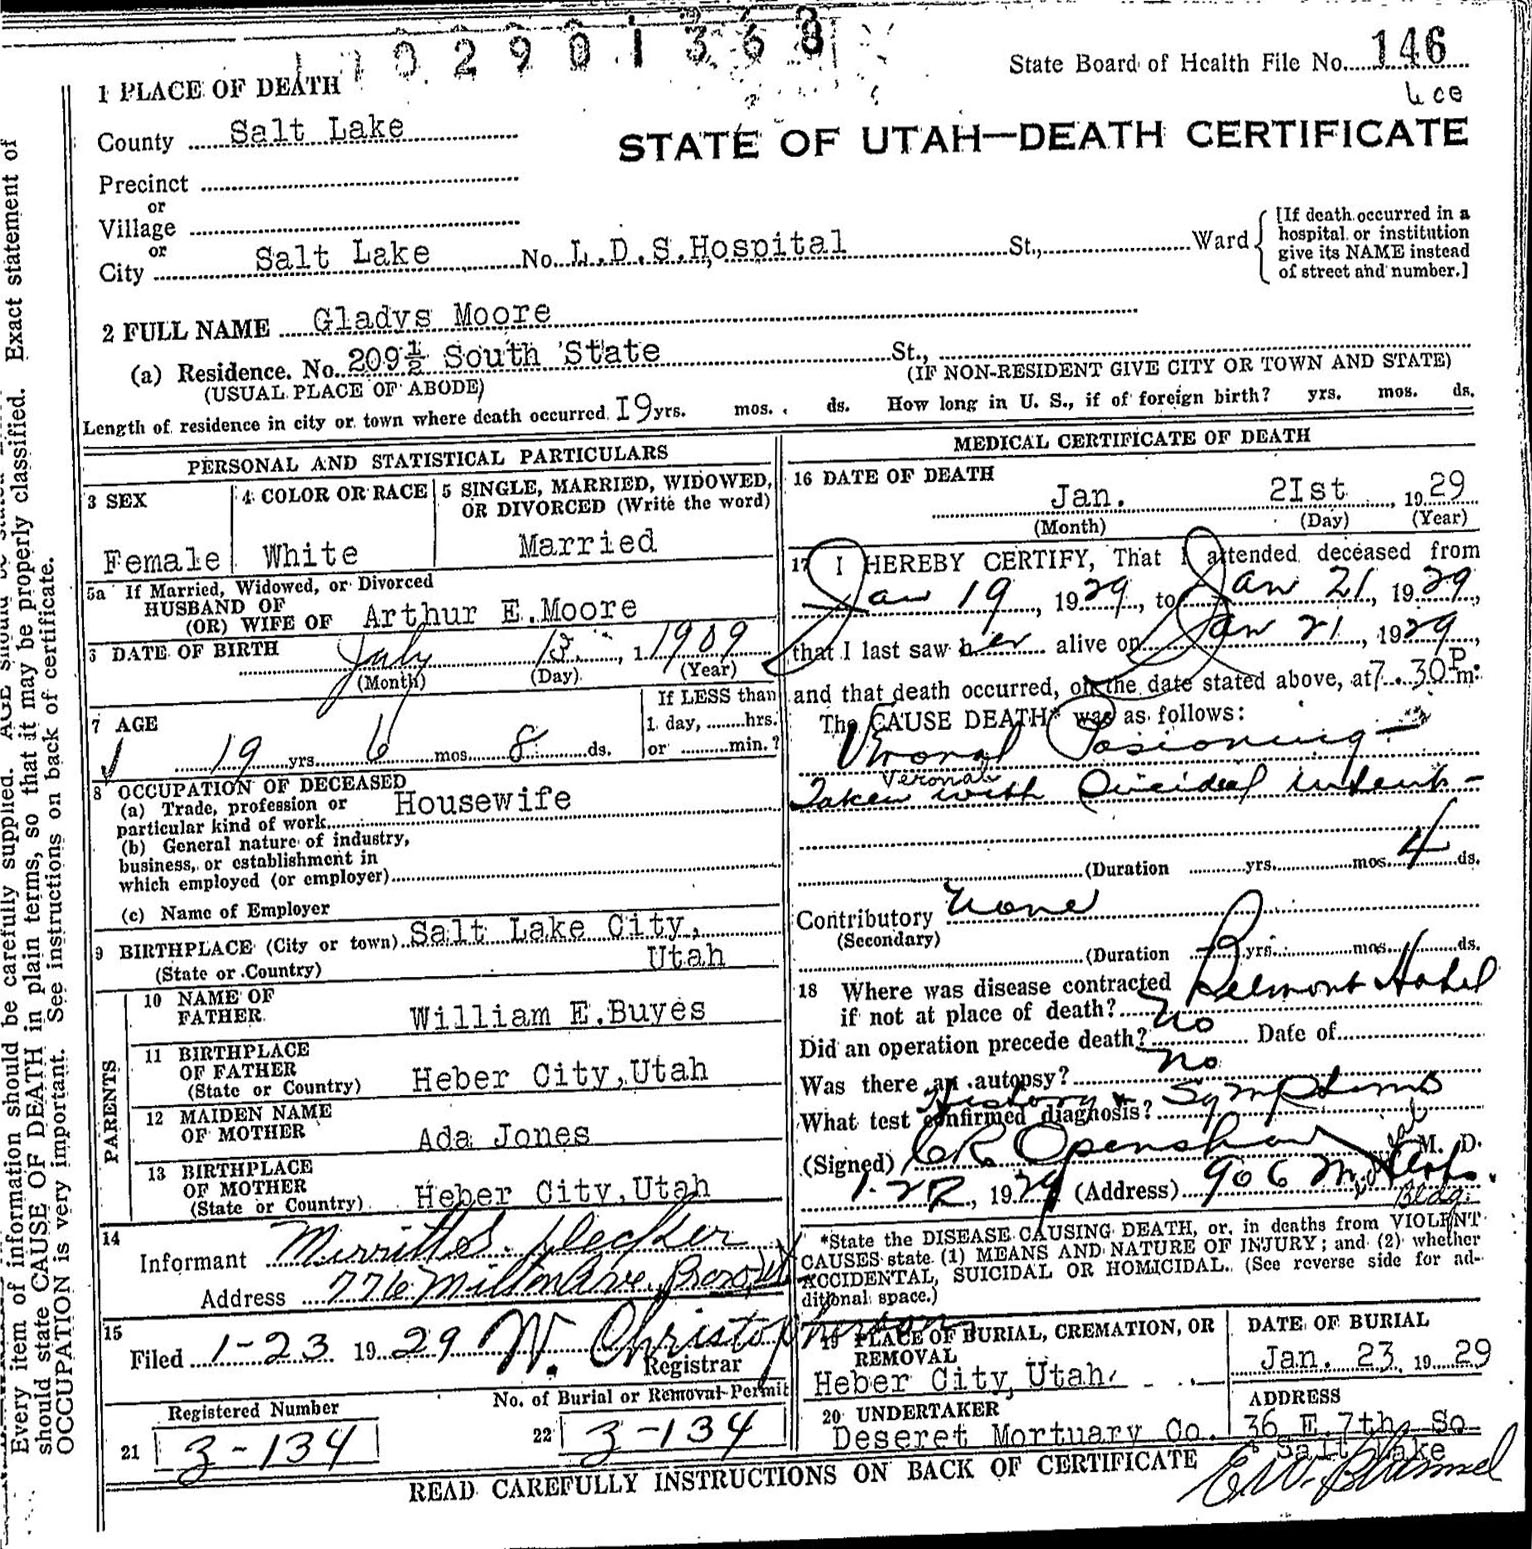 1 7 0 2 9 0 1 3 6 8
State Board of Health File No. 146
1 PLACE OF DEATH
County Salt Lake
STATE OF UTAH—DEATH CERTIFICATE
Precinct
or
Village
or
City Salt Lake No. L.D.S.Hospital St., Ward
[If death occurred in a
hospital or institution
give its NAME instead
of street and number.]
2 FULL NAME Gladys Moore
(a) Residence. No. 209½ South State St.,
(USUAL PLACE OF ABODE)
(IF NON-RESIDENT GIVE CITY OR TOWN AND STATE)
Length of residence in city or town where death occurred I9 yrs. mos. ds. How long in U. S., if of foreign birth? yrs. mos. ds.
PERSONAL AND STATISTICAL PARTICULARS
3 SEX
Female
4 COLOR OR RACE
White
5 SINGLE, MARRIED, WIDOWED,
OR DIVORCED (Write the word)
Married
5a If Married, Widowed, or Divorced
HUSBAND OF
(OR) WIFE OF Arthur E.Moore
6 DATE OF BIRTH July 13, 1909
(Month) (Day) (Year)
7 AGE
19 yrs. 6 mos. 8 ds.
If LESS than
1 day, hrs.
or min.?
8 OCCUPATION OF DECEASED
(a) Trade, profession or
particular kind of work Housewife
(b) General nature of industry,
business, or establishment in
which employed (or employer)
(c) Name of Employer
9 BIRTHPLACE (City or town) Salt Lake City,
(State or Country) Utah
PARENTS
10 NAME OF
FATHER William E.Buyes
11 BIRTHPLACE
OF FATHER
(State or Country) Heber City,Utah
12 MAIDEN NAME
OF MOTHER Ada Jones
13 BIRTHPLACE
OF MOTHER
(State or Country) Heber City,Utah
14
Informant
Address 776 Milton Ave.
15
Filed 1-23 1929 W. Christopherson
Registrar
Registered Number
21 3-134
No. of Burial or Removal Permit
22 3-134
MEDICAL CERTIFICATE OF DEATH
16 DATE OF DEATH
Jan. 2Ist, 1929
(Month) (Day) (Year)
17 I HEREBY CERTIFY, That I attended deceased from
Jan 19, 1929, to Jan 21, 1929,
that I last saw her alive on Jan 21, 1929,
and that death occurred, on the date stated above, at 7.30 P. m.
The CAUSE DEATH* was as follows:
Veronal Posioning—
Veronal
Taken with Suicidal intent—
(Duration yrs. mos. 4 ds.
Contributory None
(Secondary)
(Duration yrs. mos. ds.
18 Where was disease contracted
if not at place of death? Belmont Hotel
Did an operation precede death? No Date of
Was there an autopsy? No
What test confirmed diagnosis? History & Symptoms
(Signed) C R Openshaw M. D.
1-22, 1929 (Address) 906 Medical Arts
Bldg.
*State the DISEASE CAUSING DEATH, or, in deaths from VIOLENT
CAUSES state (1) MEANS AND NATURE OF INJURY; and (2) whether
ACCIDENTAL, SUICIDAL OR HOMICIDAL. (See reverse side for ad-
ditional space.)
19 PLACE OF BURIAL, CREMATION, OR
REMOVAL
Heber City, Utah.
DATE OF BURIAL
Jan. 23, 1929
20 UNDERTAKER
Deseret Mortuary Co.
ADDRESS
36 E. 7th So
Salt Lake
READ CAREFULLY INSTRUCTIONS ON BACK OF CERTIFICATE
Every item of information should be carefully supplied. AGE should be stated Exact statement of
should state CAUSE OF DEATH in plain terms, so that it may be properly classified.
OCCUPATION is very important. See instructions on back of certificate.